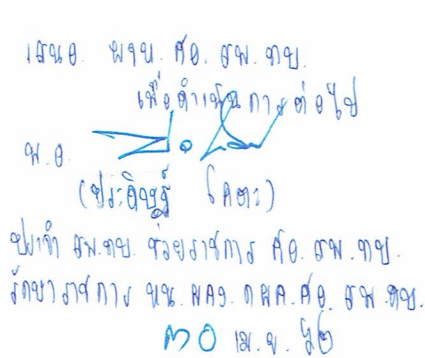 เสนอ ผขบ.ศอ.สพ.ทบ.
เพื่อดำเนินการต่อไป
พ.อ.
(ประดิษฐ์ โคตะ)
ประจำ สพ.ทบ. ช่วยราชการ ศอ.สพ.ทบ.
รักษาราชการ หน.ผคง.กผค.ศอ.สพ.ทบ.
๓๐ เม.ย. ๖๒